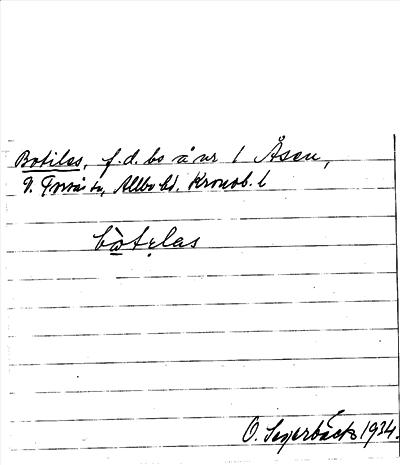 Botilas, f.d. bo å nr 1 Åsen,
V. Torsås sn, Allbo hd. Kronob. l
bòtelas
O. Sagerbäck 1934.